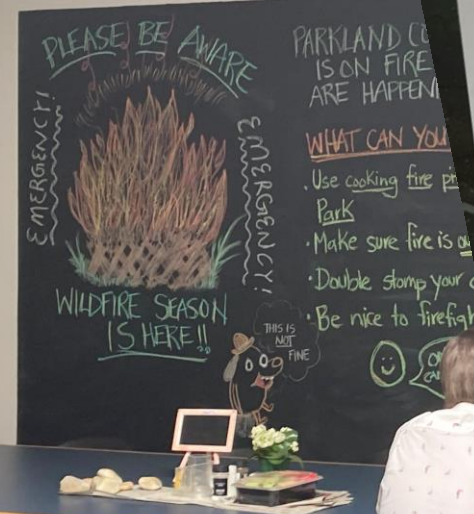 PLEASE BE AWARE
EMERGENCY!
EMERGENCY!
WILDFIRE SEASON
IS HERE!!
THIS IS
NOT
FINE
PARKLAND
IS ON FIRE
ARE
WHAT CAN YOU
• Use cooking fire
Park
• Make sure fire is
• Double stomp your
• Be nice to